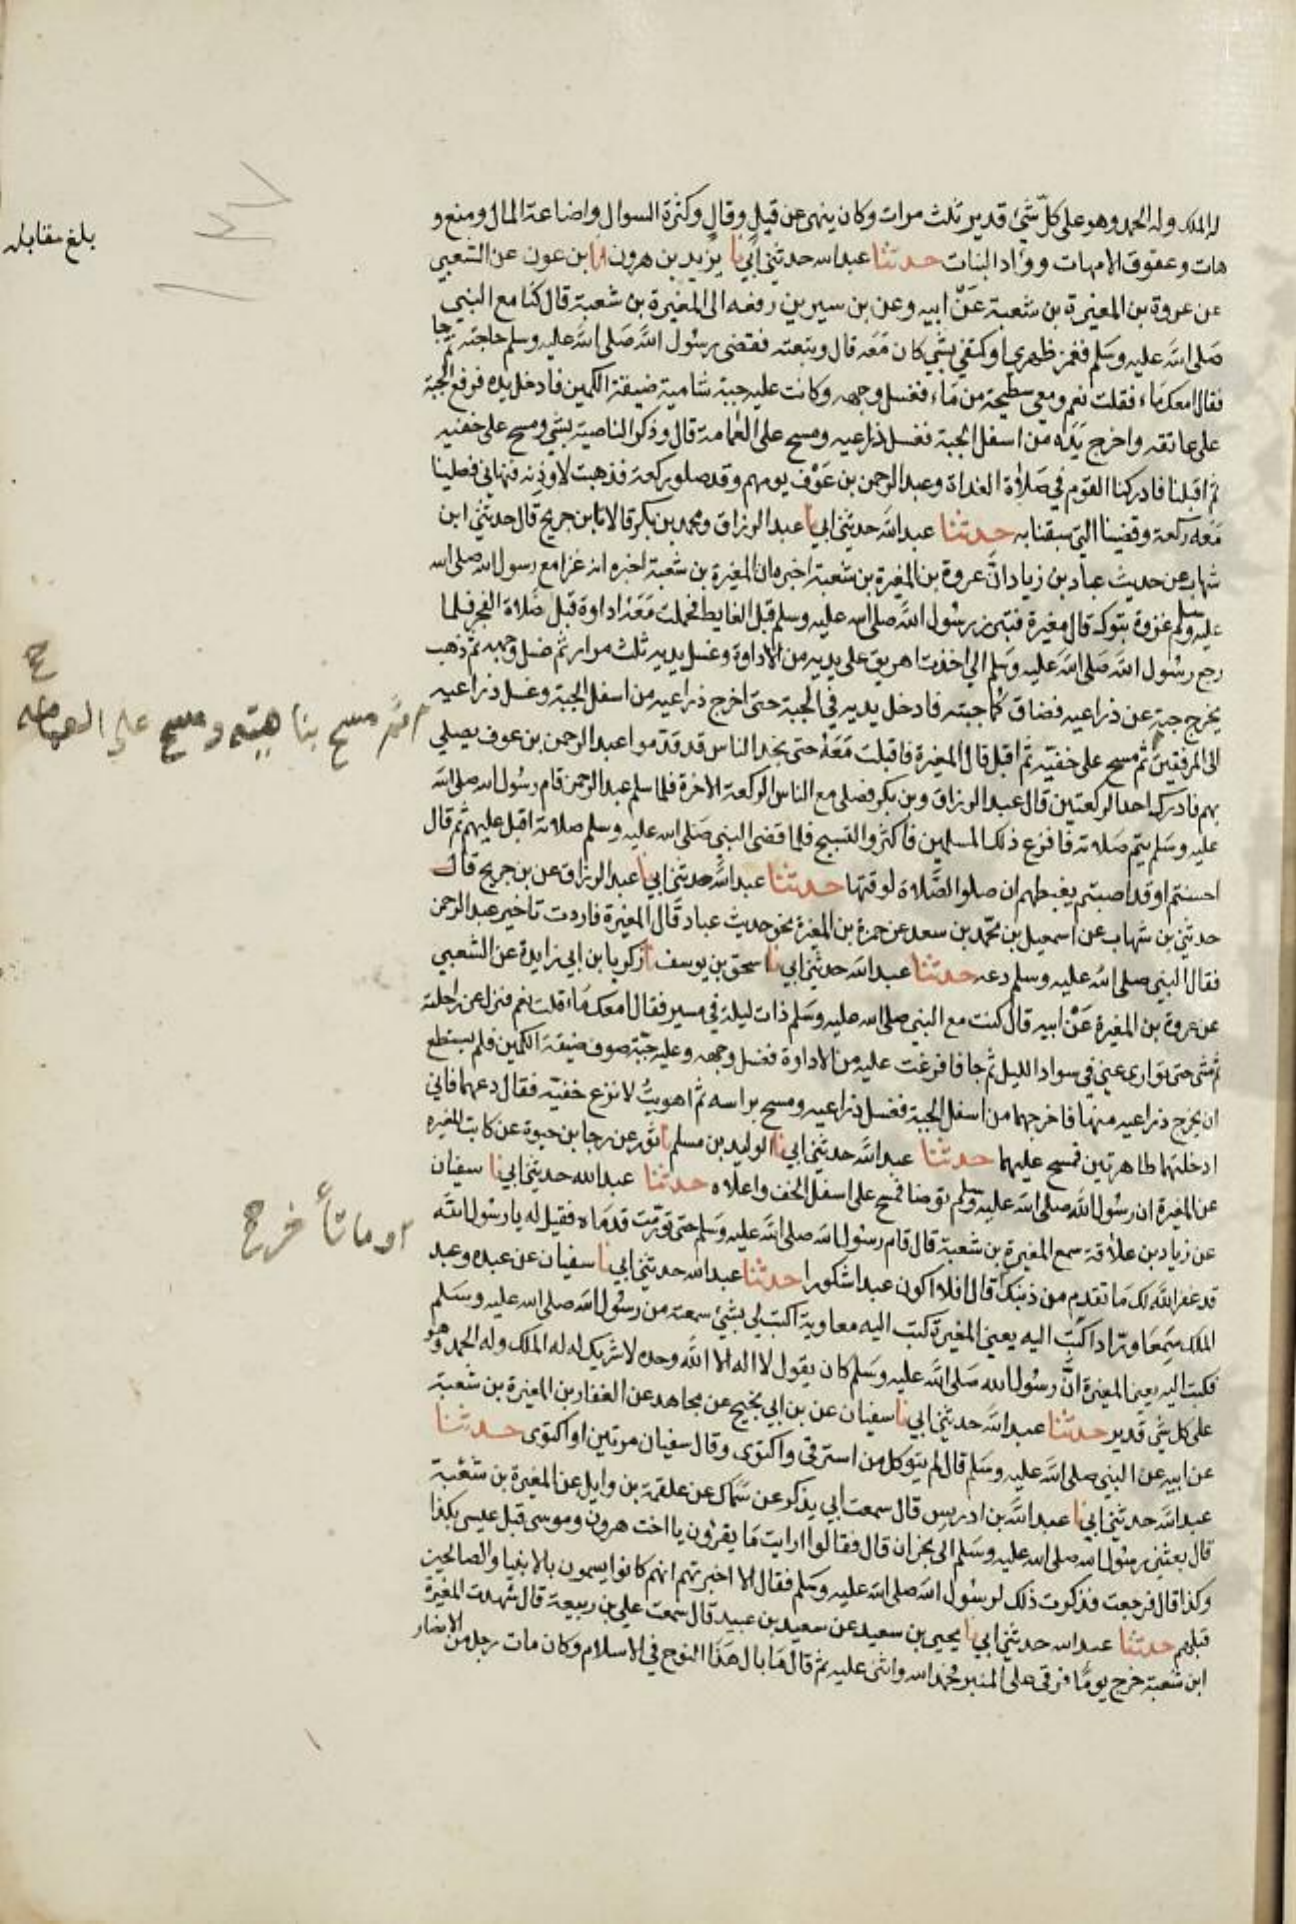 له الملك وله الحمد وهو على كلّ شيء قدير ثلث مرات وكان ينهى عن قيل وقال وكثرة السوال واضاعة المال ومنع و
هات وعقوق الامهات وواد البنات حدثنا عبدالله حدثني ابي نا يزيد بن هرون انا بن عون عن الشعبي
عن عروة بن المغيرة بن شعبة عن ابيه وعن بن سيرين رفعه الى المغيرة بن شعبة قال كنا مع النبي
صلى الله عليه وسلم فغمز ظهري او كتفي بشي كان معه قال وتبعته فقضى رسول الله صلى الله عليه وسلم حاجته ثم جا
فقال امعك ماء فقلت نعم ومعي سطيحة من ماء فغسل وجهه وكانت عليه جبة شامية ضيقة الكمين فادخل يده فرفع الجبة
على عاتقه واخرج يده من اسفل الجبة فغسل ذراعيه ومسح على العمامة قال وذكر الناصية بشي ومسح على خفيه
ثم اقبلنا فادركنا القوم في صلاة الغداة وعبد الرحمن بن عوف يومهم وقد صلو ركعة فذهبت لاوذنه فنهاني فصلينا
معه ركعة وقضينا التي سبقنا به حدثنا عبد الله حدثني ابي نا عبد الرزاق ومحمد بن بكر قالا نا بن جريج قال حدثني ابن
شهاب عن حديث عباد بن زياد انّ عروة بن المغيرة بن شعبة اخبره ان المغيرة بن شعبة اخبره انه غزا مع رسول الله صلى الله
عليه وسلم غزوة تبوك قال مغيرة فتبرز رسول الله صلى الله عليه وسلم قبل الغايط فحملت معه اداوة قبل صلاة الفجر فلما
رجع رسول الله صلى الله عليه وسلم الي اخذت اهريق على يديه من الاداوة وغسل يديه ثلث مرار ثم غسل وجهه ثم ذهب
يخرج جبته عن ذراعيه فضاق كما جبته فادخل يديه في الجبة حتى اخرج ذراعيه من اسفل الجبة وغسل ذراعيه
الى المرفقين ثم مسح على خفيه ثم اقبل قال المغيرة فاقبلت معه حتى يجد الناس قد قدموا عبد الرحمن بن عوف يصلي
بهم فادرك احد الركعتين قال عبد الرزاق وبن بكر فصلى مع الناس الركعة الاخرة فلما سلم عبد الرحمن قام رسول الله صلى الله
عليه وسلم يتم صلاته فافزع ذلك المسلمين فاكثروا التسبيح فلما قضى النبي صلى الله عليه وسلم صلاته اقبل عليهم ثم قال
احسنتم او قد اصبتم يغبطهم ان صلوا الصلاة لوقتها حدثنا عبد الله حدثني ابي نا عبد الرزاق عن بن جريج قال
حدثني بن شهاب عن اسمعيل بن محمد بن سعد عن حمزة بن المغيرة نحو حديث عباد قال المغيرة فاردت تاخير عبد الرحمن
فقال النبي صلى الله عليه وسلم دعه حدثنا عبد الله حدثني ابي نا اسحق بن يوسف نا زكريا بن ابي زايدة عن الشعبي
عن عروة بن المغيرة عن ابيه قال كنت مع النبي صلى الله عليه وسلم ذات ليلة في مسير فقال امعك ماء قلت نعم فنزل عن راحلته
ثم مشى حتى توارى عني في سواد الليل ثم جا فافرغت عليه من الاداوة فغسل وجهه وعليه جبة صوف ضيقة الكمين فلم يستطع
ان يخرج ذراعيه منها فاخرجهما من اسفل الجبة فغسل ذراعيه ومسح براسه ثم اهويت لانزع خفيه فقال دعهما فاني
ادخلتهما طاهرتين فمسح عليهما حدثنا عبد الله حدثني ابي نا الوليد بن مسلم نا ثور عن رجا بن حيوة عن كاتب المغيرة
عن المغيرة ان رسول الله صلى الله عليه وسلم توضا فمسح على اسفل الخف واعلاه حدثنا عبدالله حدثني ابي نا سفيان
عن زياد بن علاقة سمع المغيرة بن شعبة قال قام رسول الله صلى الله عليه وسلم حتى تورمت قدماه فقيل له يا رسول الله
قد غفر الله لك ما تقدم من ذنبك قال افلا اكون عبدا شكورا حدثنا عبدالله حدثني ابي نا سفيان عن عبده وعبد
الملك سمعا ورادا كتب اليه يعني المغيرة كتب اليه معاوية اكتب لي بشيء سمعته من رسول الله صلى الله عليه وسلم
فكتب اليه يعني المغيرة انّ رسول الله صلى الله عليه وسلم كان يقول لا اله الا الله وحده لا شريك له له الملك وله الحمد وهو
على كل شي قدير حدثنا عبد الله حدثني ابي نا سفيان عن بن ابي نجيح عن مجاهد عن الغفار بن المغيرة بن شعبة
عن ابيه عن النبي صلى الله عليه وسلم قال لم يتوكل من استرقى واكتوى وقال سفيان مرتين او اكتوى حدثنا
عبد الله حدثني ابي نا عبد الله بن ادريس قال سمعت ابي يذكر عن سماك عن علقمة بن وايل عن المغيرة بن شعبة
قال بعثني رسول الله صلى الله عليه وسلم الى نجران قال فقالوا ارايت ما يقرون يا اخت هرون وموسى قبل عيسى بكذا
وكذا قال فرجعت فذكرت ذلك لرسول الله صلى الله عليه وسلم فقال الا اخبرتهم انهم كانوا يسمون بالانبيا والصالحين
قبلهم حدثنا عبد الله حدثني ابي نا يحيى بن سعيد عن سعيد بن عبيد قال سمعت علي بن ربيعة قال شهدت المغيرة
ابن شعبة خرج يوما فرقى على المنبر فحمد الله واثنى عليه ثم قال ما بال هذا النوح في الاسلام وكان مات رجل من الانصار
بلغ مقابله
ثم مسح بناصيته ومسح على العمامة